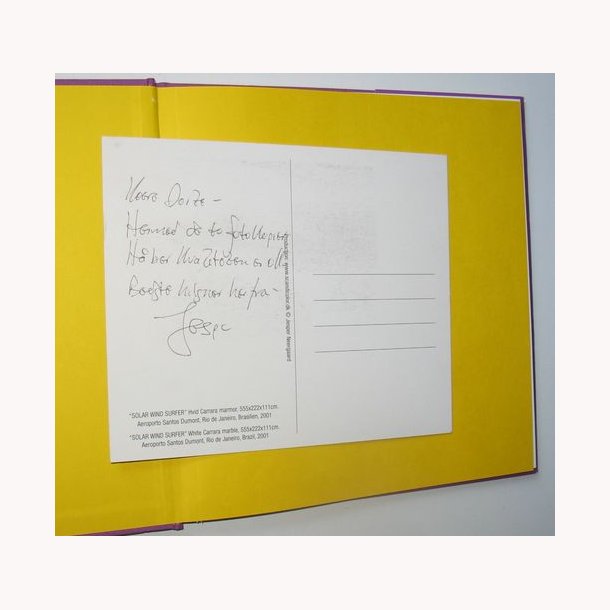 Kære Dorte -
Hermed de to fotokopier
Håber kvaliteten er ok.
Bedste hilsner herfra -
Jesper
"SOLAR WIND SURFER" Hvid Carrara marmor, 555x222x111cm.
Aeroporto Santos Dumont, Rio de Janeiro, Brasilien, 2001
"SOLAR WIND SURFER" White Carrara marble, 555x222x111cm.
Aeroporto Santos Dumont, Rio de Janeiro, Brazil, 2001
www.scandcolor.dk © Jesper Neergaard